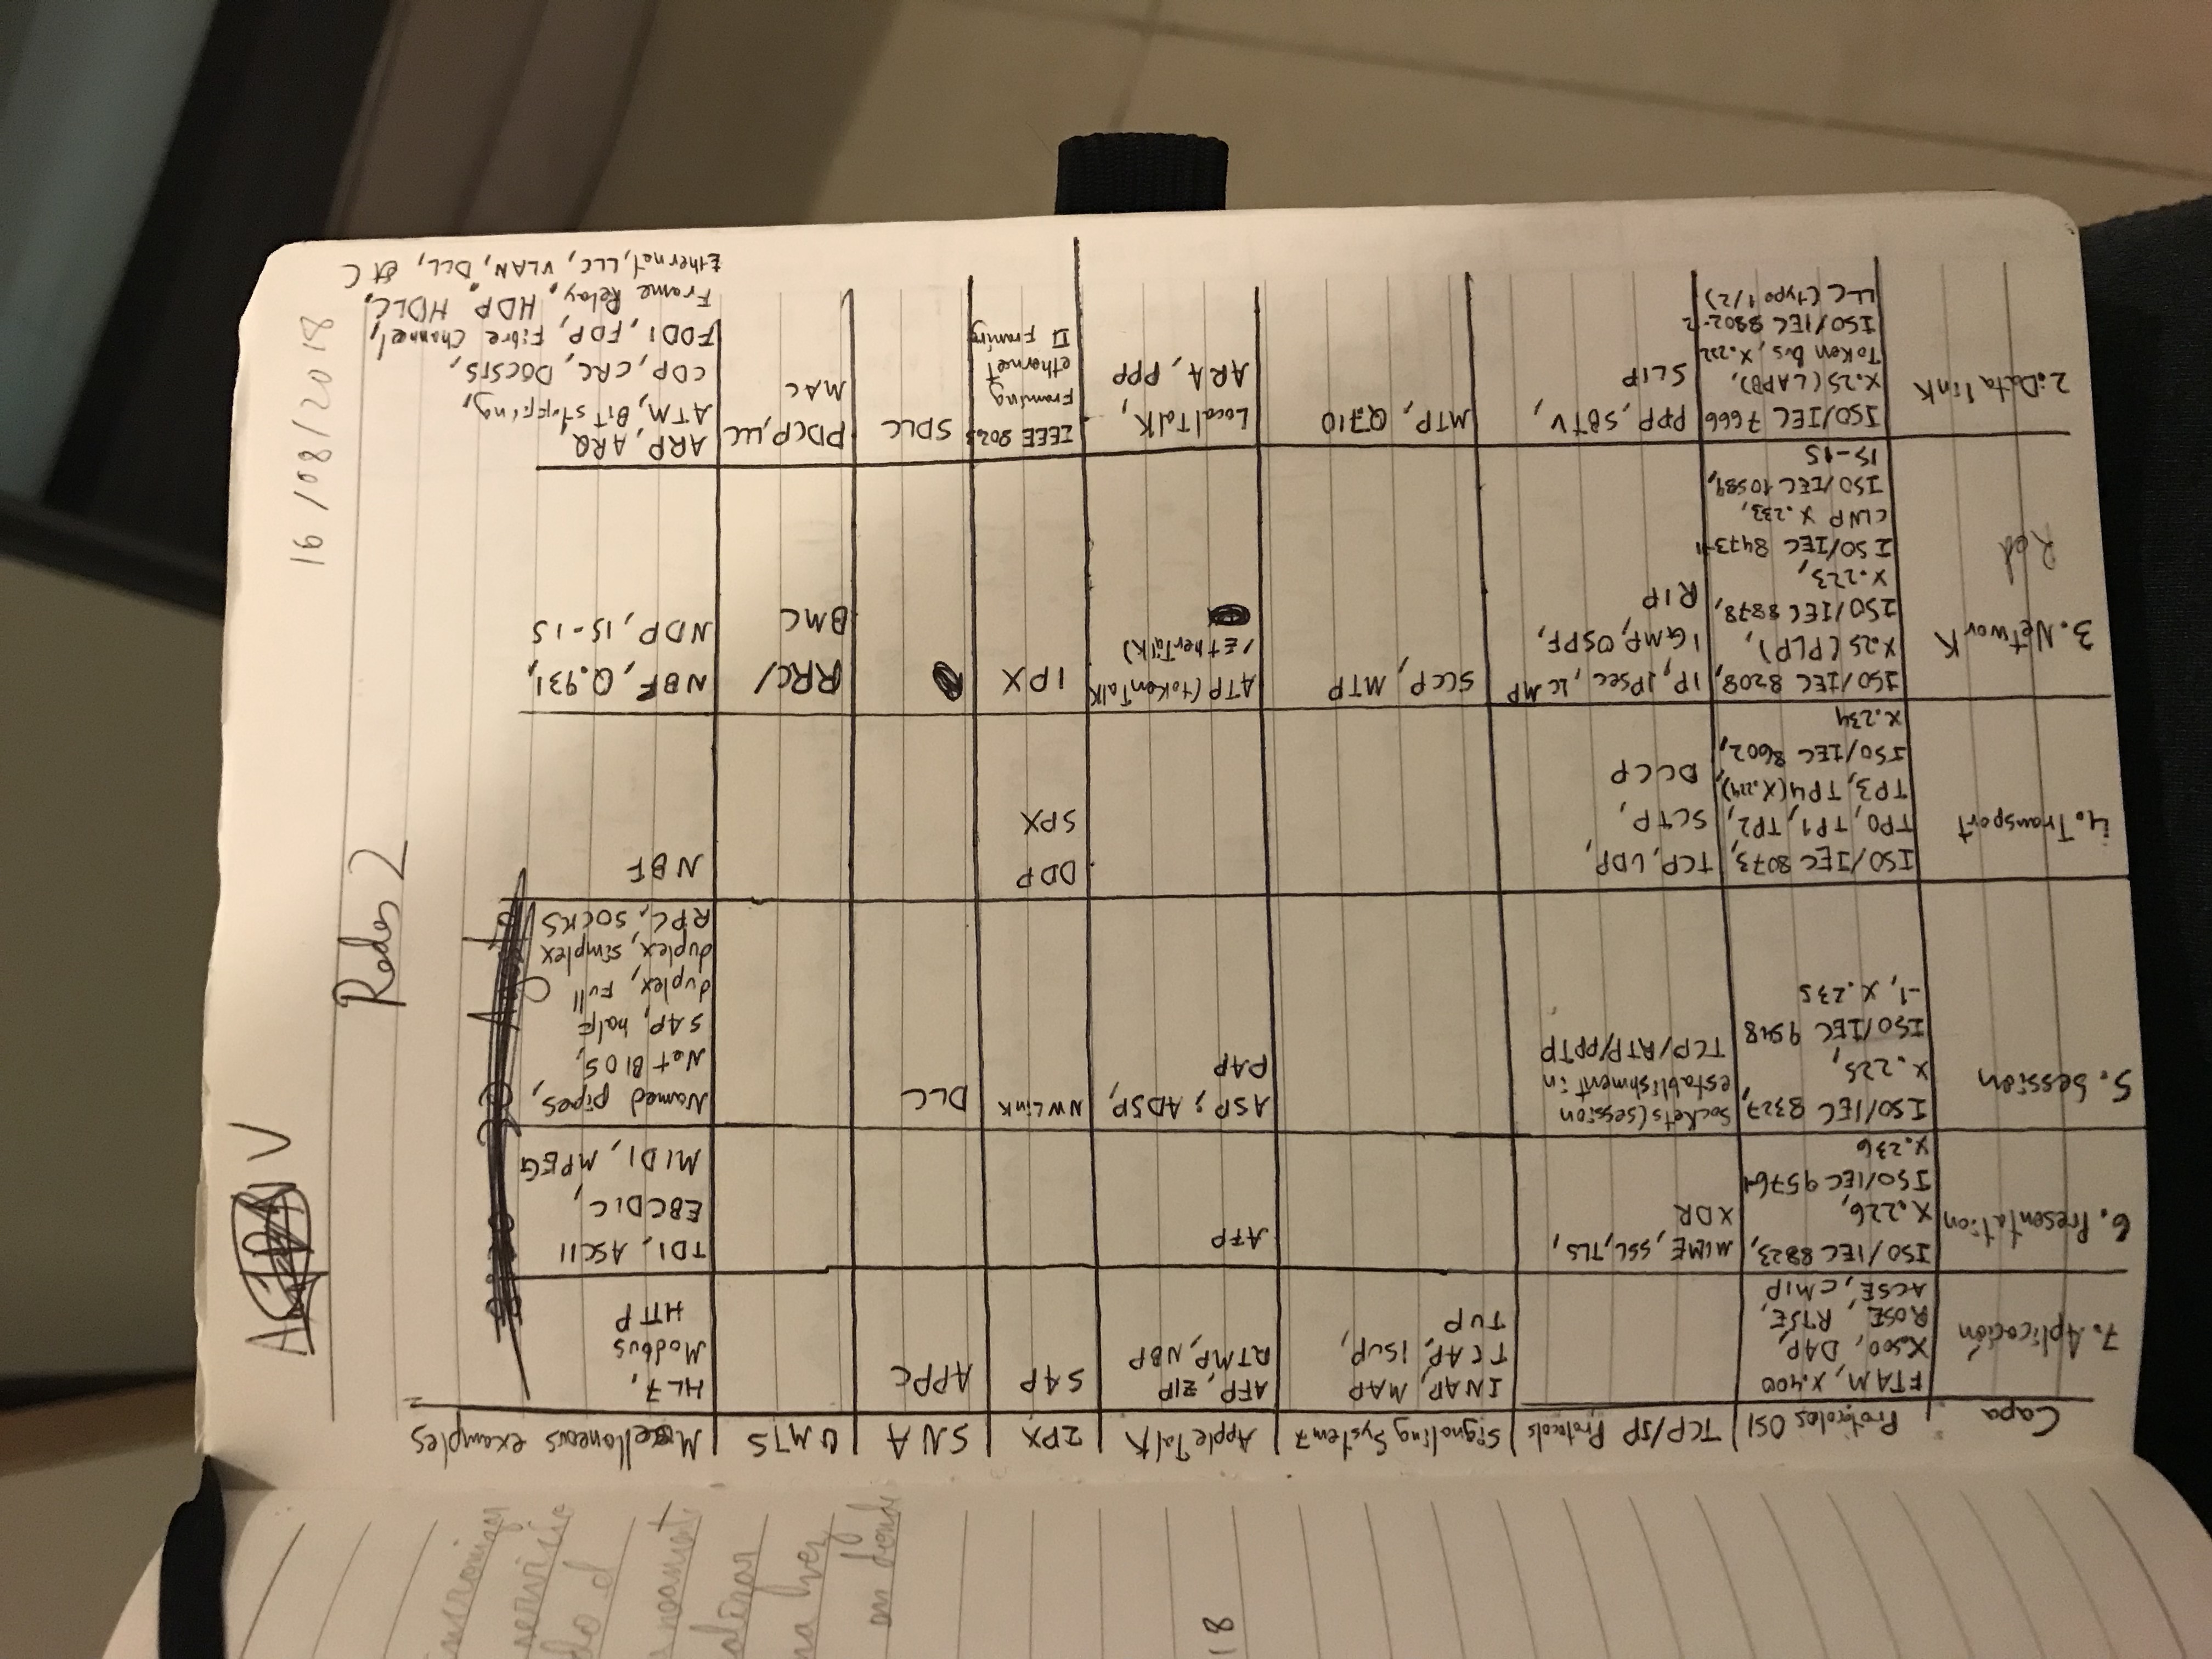 V
16/08/2018
Redes 2
Capa | Protocolos OSI | TCP/IP Protocols | Signaling System 7 | AppleTalk | IPX | SNA | UMTS | Miscellaneous examples
7. Aplicación
FTAM, X.400
X.500, DAP,
ROSE, RTSE,
ACSE, CMIP
INAP, MAP
TCAP, ISUP,
TUP
AFP, ZIP
RTMP, NBP
SAP
APPC
HL7,
Modbus
HTTP
6. Presentation
ISO/IEC 8823,
X.226,
ISO/IEC 9576-1
X.236
MIME, SSL, TLS,
XDR
AFP
TDI, ASCII
EBCDIC,
MIDI, MPEG
5. Session
ISO/IEC 8327,
X.225,
ISO/IEC 9548
-1, X.235
Sockets (session
establishment in
TCP/RTP/PPTP
ASP, ADSP,
PAP
NWLink
DLC
Named pipes,
NetBIOS,
SAP, half
duplex, Full
duplex, simplex
RPC, SOCKS
4. Transport
ISO/IEC 8073,
TP0, TP1, TP2,
TP3, TP4 (X.214),
ISO/IEC 8602,
X.234
TCP, UDP,
SCTP,
DCCP
DDP
SPX
NBF
3. Network
Red
ISO/IEC 8208,
X.25 (PLP),
ISO/IEC 8878,
X.223,
ISO/IEC 8473-1
CLNP X.233,
ISO/IEC 10589,
IS-IS
IP, IPsec, ICMP
IGMP, OSPF,
RIP
SCCP, MTP
ATP (TokenTalk
/EtherTalk)
IPX
RRC/
BMC
NBF, Q.931,
NDP, IS-IS
2. Datalink
ISO/IEC 7666
X.25 (LAPB),
Token Bus, X.222
ISO/IEC 8802-2
LLC (type 1/2)
PPP, SBTV,
SLIP
MTP, Q.710
LocalTalk,
ARA, PPP
IEEE 802.3
Framing
ethernet
II Framing
SDLC
PDCP, LLC
MAC
ARP, ARQ,
ATM, Bit stuffing,
CDP, CRC, DOCSIS,
FDDI, FDP, Fibre Channel,
Frame Relay, HDP HDLC,
Ethernet, LLC, VLAN, DLL, etc
18
na vez
en donde